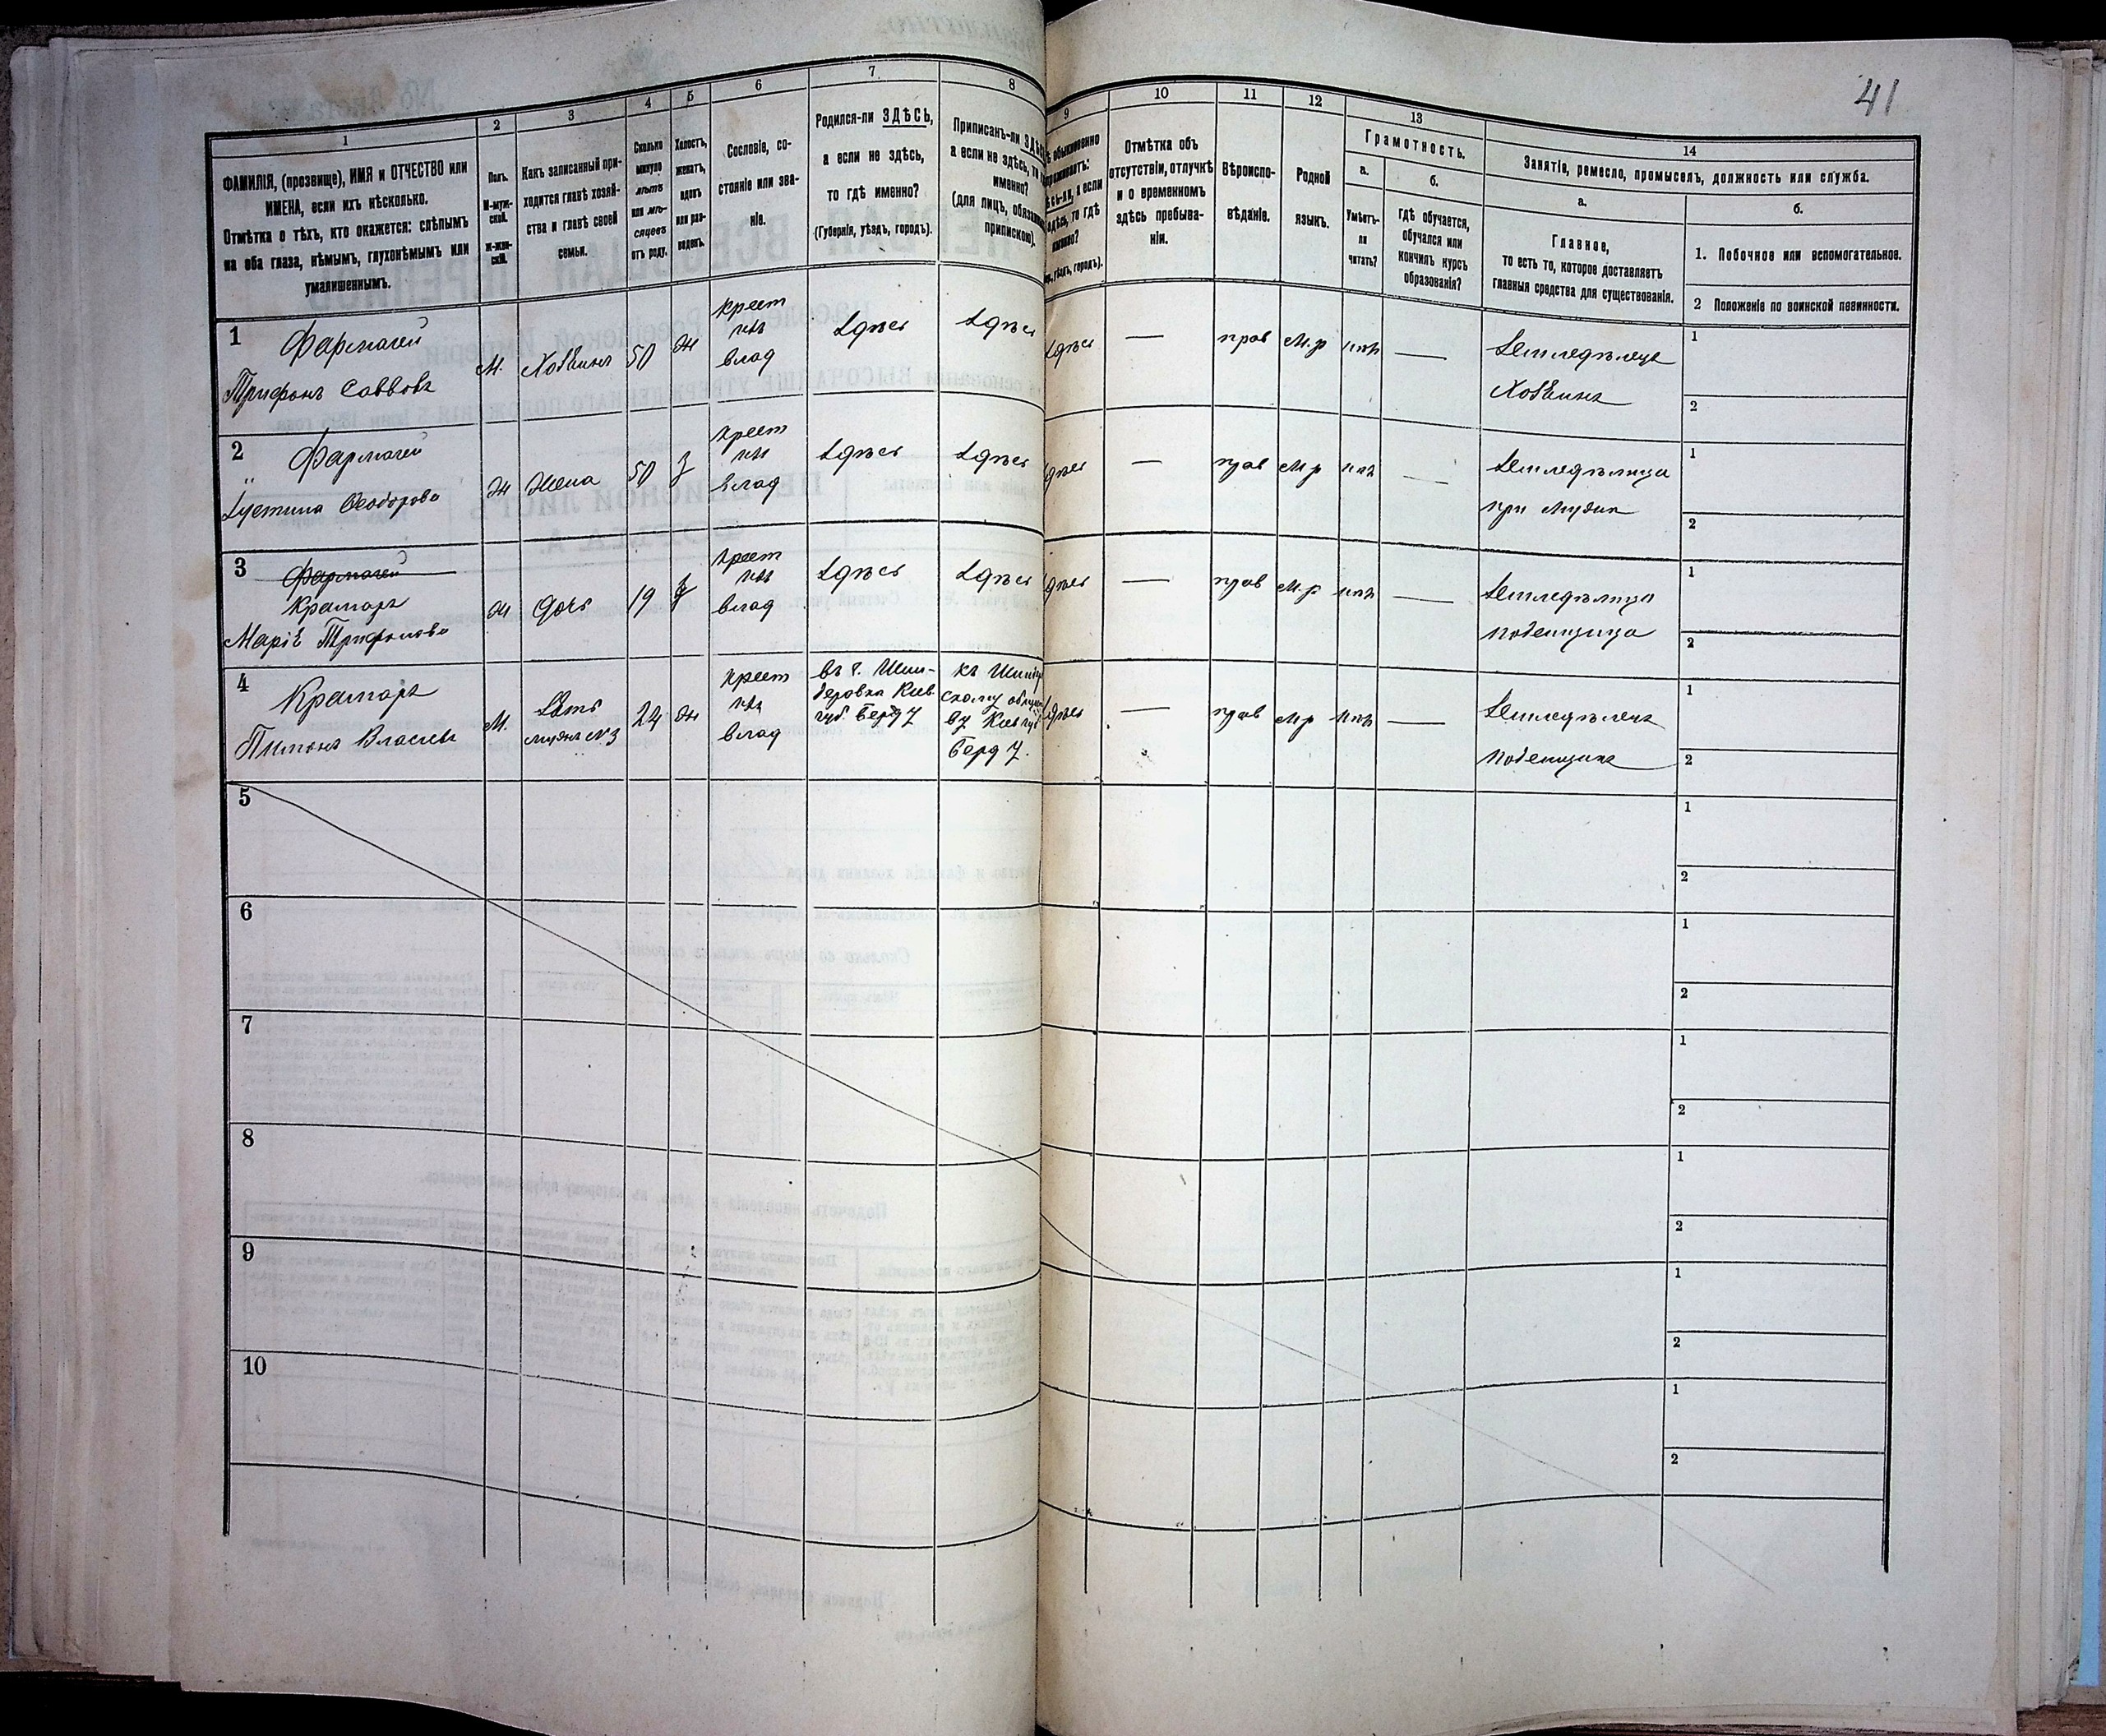 41
1
2
3
4
5
6
7
8
9
10
11
12
13
14
ФАМИЛІЯ, (прозвище), ИМЯ и ОТЧЕСТВО или
ИМЕНА, если ихъ нѣсколько.
Отмѣтка о тѣхъ, кто окажется: слѣпымъ
на оба глаза, нѣмымъ, глухонѣмымъ или
умалишеннымъ.
Полъ.
М-муж-
ской.
Ж-жен-
скій.
Какъ записанный при-
ходится главѣ хозяй-
ства и главѣ своей
семьи.
Сколько
минуло
лѣтъ
или мѣ-
сяцевъ
отъ роду.
Холостъ,
женатъ,
вдовъ
или раз-
веденъ.
Сословіе, со-
стояніе или зва-
ніе.
Родился-ли ЗДѢСЬ,
а если не здѣсь,
то гдѣ именно?
(Губернія, уѣздъ, городъ).
Приписанъ-ли
а если не здѣсь,
именно?
(для лицъ,
припискою).
обыкновенно
а если
то гдѣ
уѣздъ, городъ).
Отмѣтка объ
отсутствіи, отлучкѣ
и о временномъ
здѣсь пребыва-
ніи.
Вѣроиспо-
вѣданіе.
Родной
языкъ.
Грамотность.
а.
Умѣетъ-
ли
читать?
б.
гдѣ обучается,
обучался или
кончилъ курсъ
образованія?
Занятіе, ремесло, промыселъ, должность или служба.
а.
Главное,
то есть то, которое доставляетъ
главныя средства для существованія.
б.
1. Побочное или вспомогательное.
2 Положеніе по воинской повинности.
1
Фармагей
Трифонъ Саввовъ
М. Хозяинъ 50 ж
крест
изъ
влад
здѣсь здѣсь здѣсь — прав м.р нѣт —
Земледѣлецъ
Хозяинъ
1
2
2
Фармагей
Іустина Феодорова
ж жена 50 з
крест
изъ
влад
здѣсь здѣсь — прав м р нѣт —
Земледѣлица
при мужѣ
1
2
3
Фармагей
Крамаръ
Марія Трифонова
ж дочь 19 з
крест
изъ
влад
здѣсь здѣсь — прав м.р нѣт —
Земледѣлица
поденщица
1
2
4
Крамаръ
Пимонъ Власіевъ
М.
Зять
мужъ №3
24 ж
крест
изъ
влад
въ
Кіев
губ. Берд у
къ
скому
Кіев губ
Берд у.
— прав м р нѣт —
Земледѣлецъ
поденщикъ
1
2
5
1
2
6
1
2
7
1
2
8
1
2
9
1
2
10
1
2